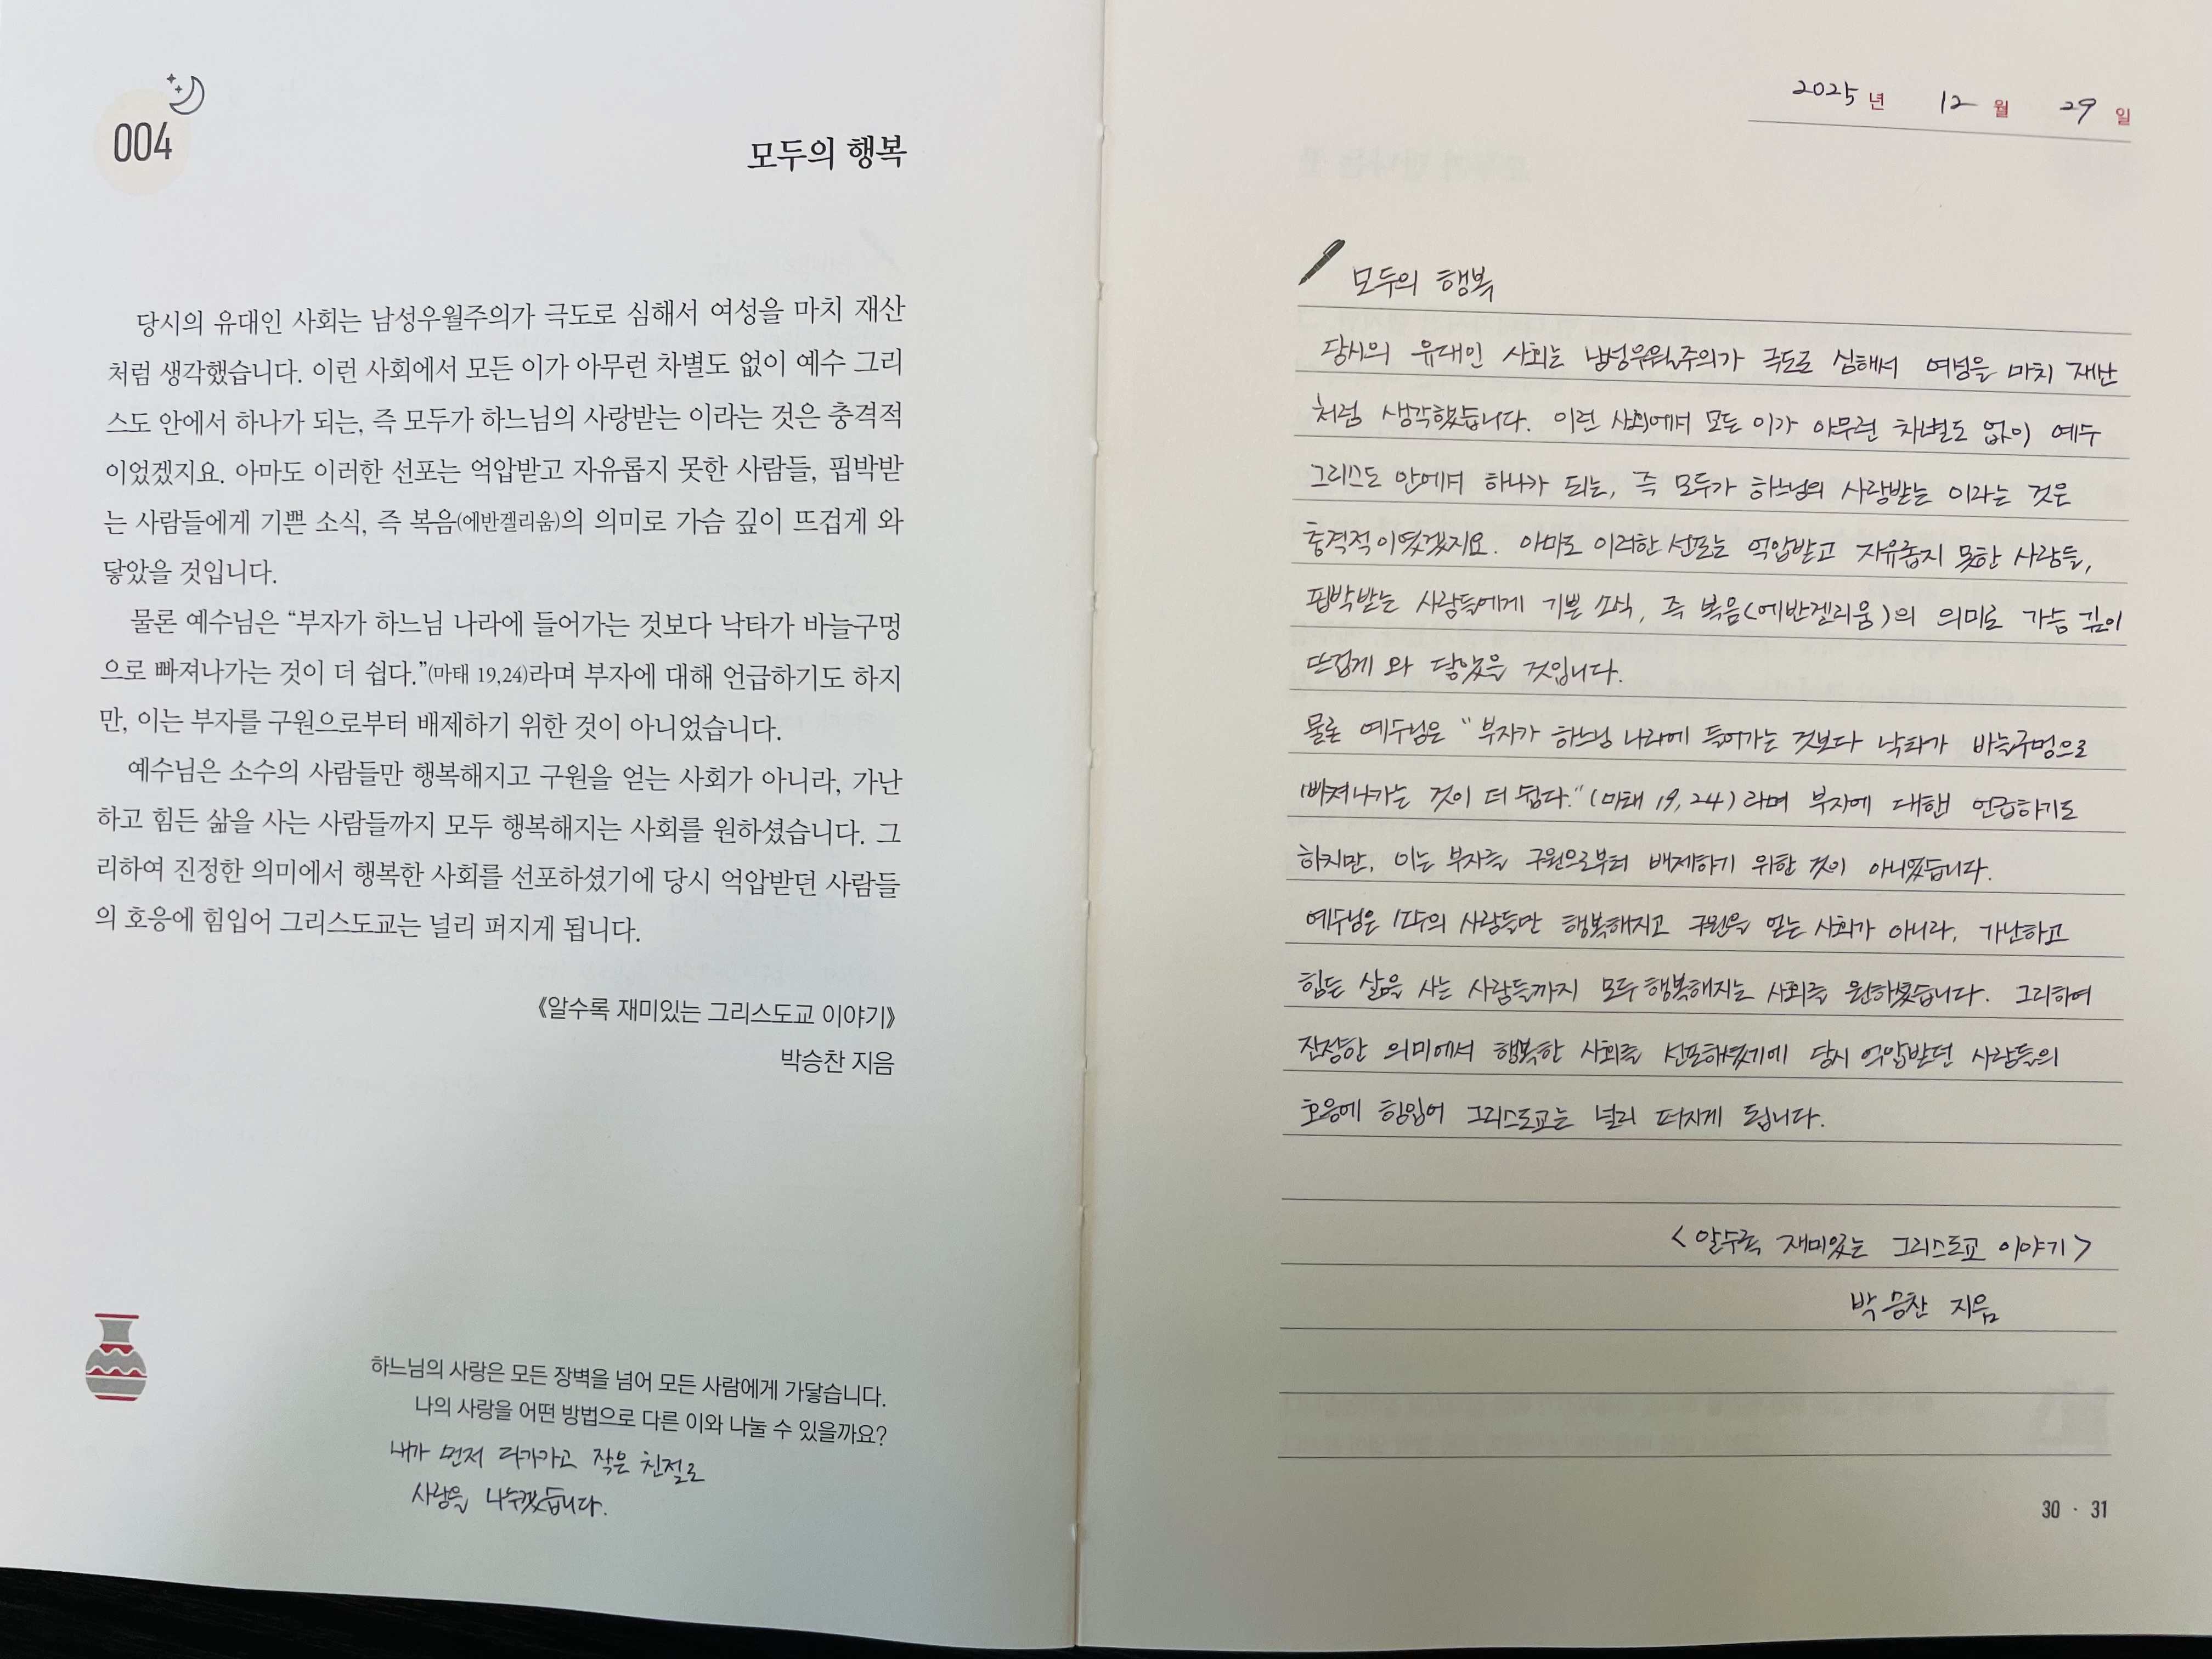 004
모두의 행복
당시의 유대인 사회는 남성우월주의가 극도로 심해서 여성을 마치 재산
처럼 생각했습니다. 이런 사회에서 모든 이가 아무런 차별도 없이 예수 그리
스도 안에서 하나가 되는, 즉 모두가 하느님의 사랑받는 이라는 것은 충격적
이었겠지요. 아마도 이러한 선포는 억압받고 자유롭지 못한 사람들, 핍박받
는 사람들에게 기쁜 소식, 즉 복음(에반겔리움)의 의미로 가슴 깊이 뜨겁게 와
닿았을 것입니다.
물론 예수님은 “부자가 하느님 나라에 들어가는 것보다 낙타가 바늘구멍
으로 빠져나가는 것이 더 쉽다.”(마태 19,24)라며 부자에 대해 언급하기도 하지
만, 이는 부자를 구원으로부터 배제하기 위한 것이 아니었습니다.
예수님은 소수의 사람들만 행복해지고 구원을 얻는 사회가 아니라, 가난
하고 힘든 삶을 사는 사람들까지 모두 행복해지는 사회를 원하셨습니다. 그
리하여 진정한 의미에서 행복한 사회를 선포하셨기에 당시 억압받던 사람들
의 호응에 힘입어 그리스도교는 널리 퍼지게 됩니다.
《알수록 재미있는 그리스도교 이야기》
박승찬 지음
하느님의 사랑은 모든 장벽을 넘어 모든 사람에게 가닿습니다.
나의 사랑을 어떤 방법으로 다른 이와 나눌 수 있을까요?
내가 먼저 다가가고 작은 친절로
사랑을 나누겠습니다.
2025년 12월 29일
모두의 행복
당시의 유대인 사회는 남성우월주의가 극도로 심해서 여성을 마치 재산
처럼 생각했습니다. 이런 사회에서 모든 이가 아무런 차별도 없이 예수
그리스도 안에서 하나가 되는, 즉 모두가 하느님의 사랑받는 이라는 것은
충격적이였겠지요. 아마도 이러한 선포는 억압받고 자유롭지 못한 사람들,
핍박받는 사람들에게 기쁜 소식, 즉 복음(에반겔리움)의 의미로 가슴 깊이
뜨겁게 와 닿았을 것입니다.
물론 예수님은 “부자가 하느님 나라에 들어가는 것보다 낙타가 바늘구멍으로
빠져나가는 것이 더 쉽다.”(마태 19,24)라며 부자에 대해 언급하기도
하지만, 이는 부자를 구원으로부터 배제하기 위한 것이 아니었습니다.
예수님은 소수의 사람들만 행복해지고 구원을 얻는 사회가 아니라, 가난하고
힘든 삶을 사는 사람들까지 모두 행복해지는 사회를 원하셨습니다. 그리하여
진정한 의미에서 행복한 사회를 선포하셨기에 당시 억압받던 사람들의
호응에 힘입어 그리스도교는 널리 퍼지게 됩니다.
<알수록 재미있는 그리스도교 이야기>
박승찬 지음
30 · 31